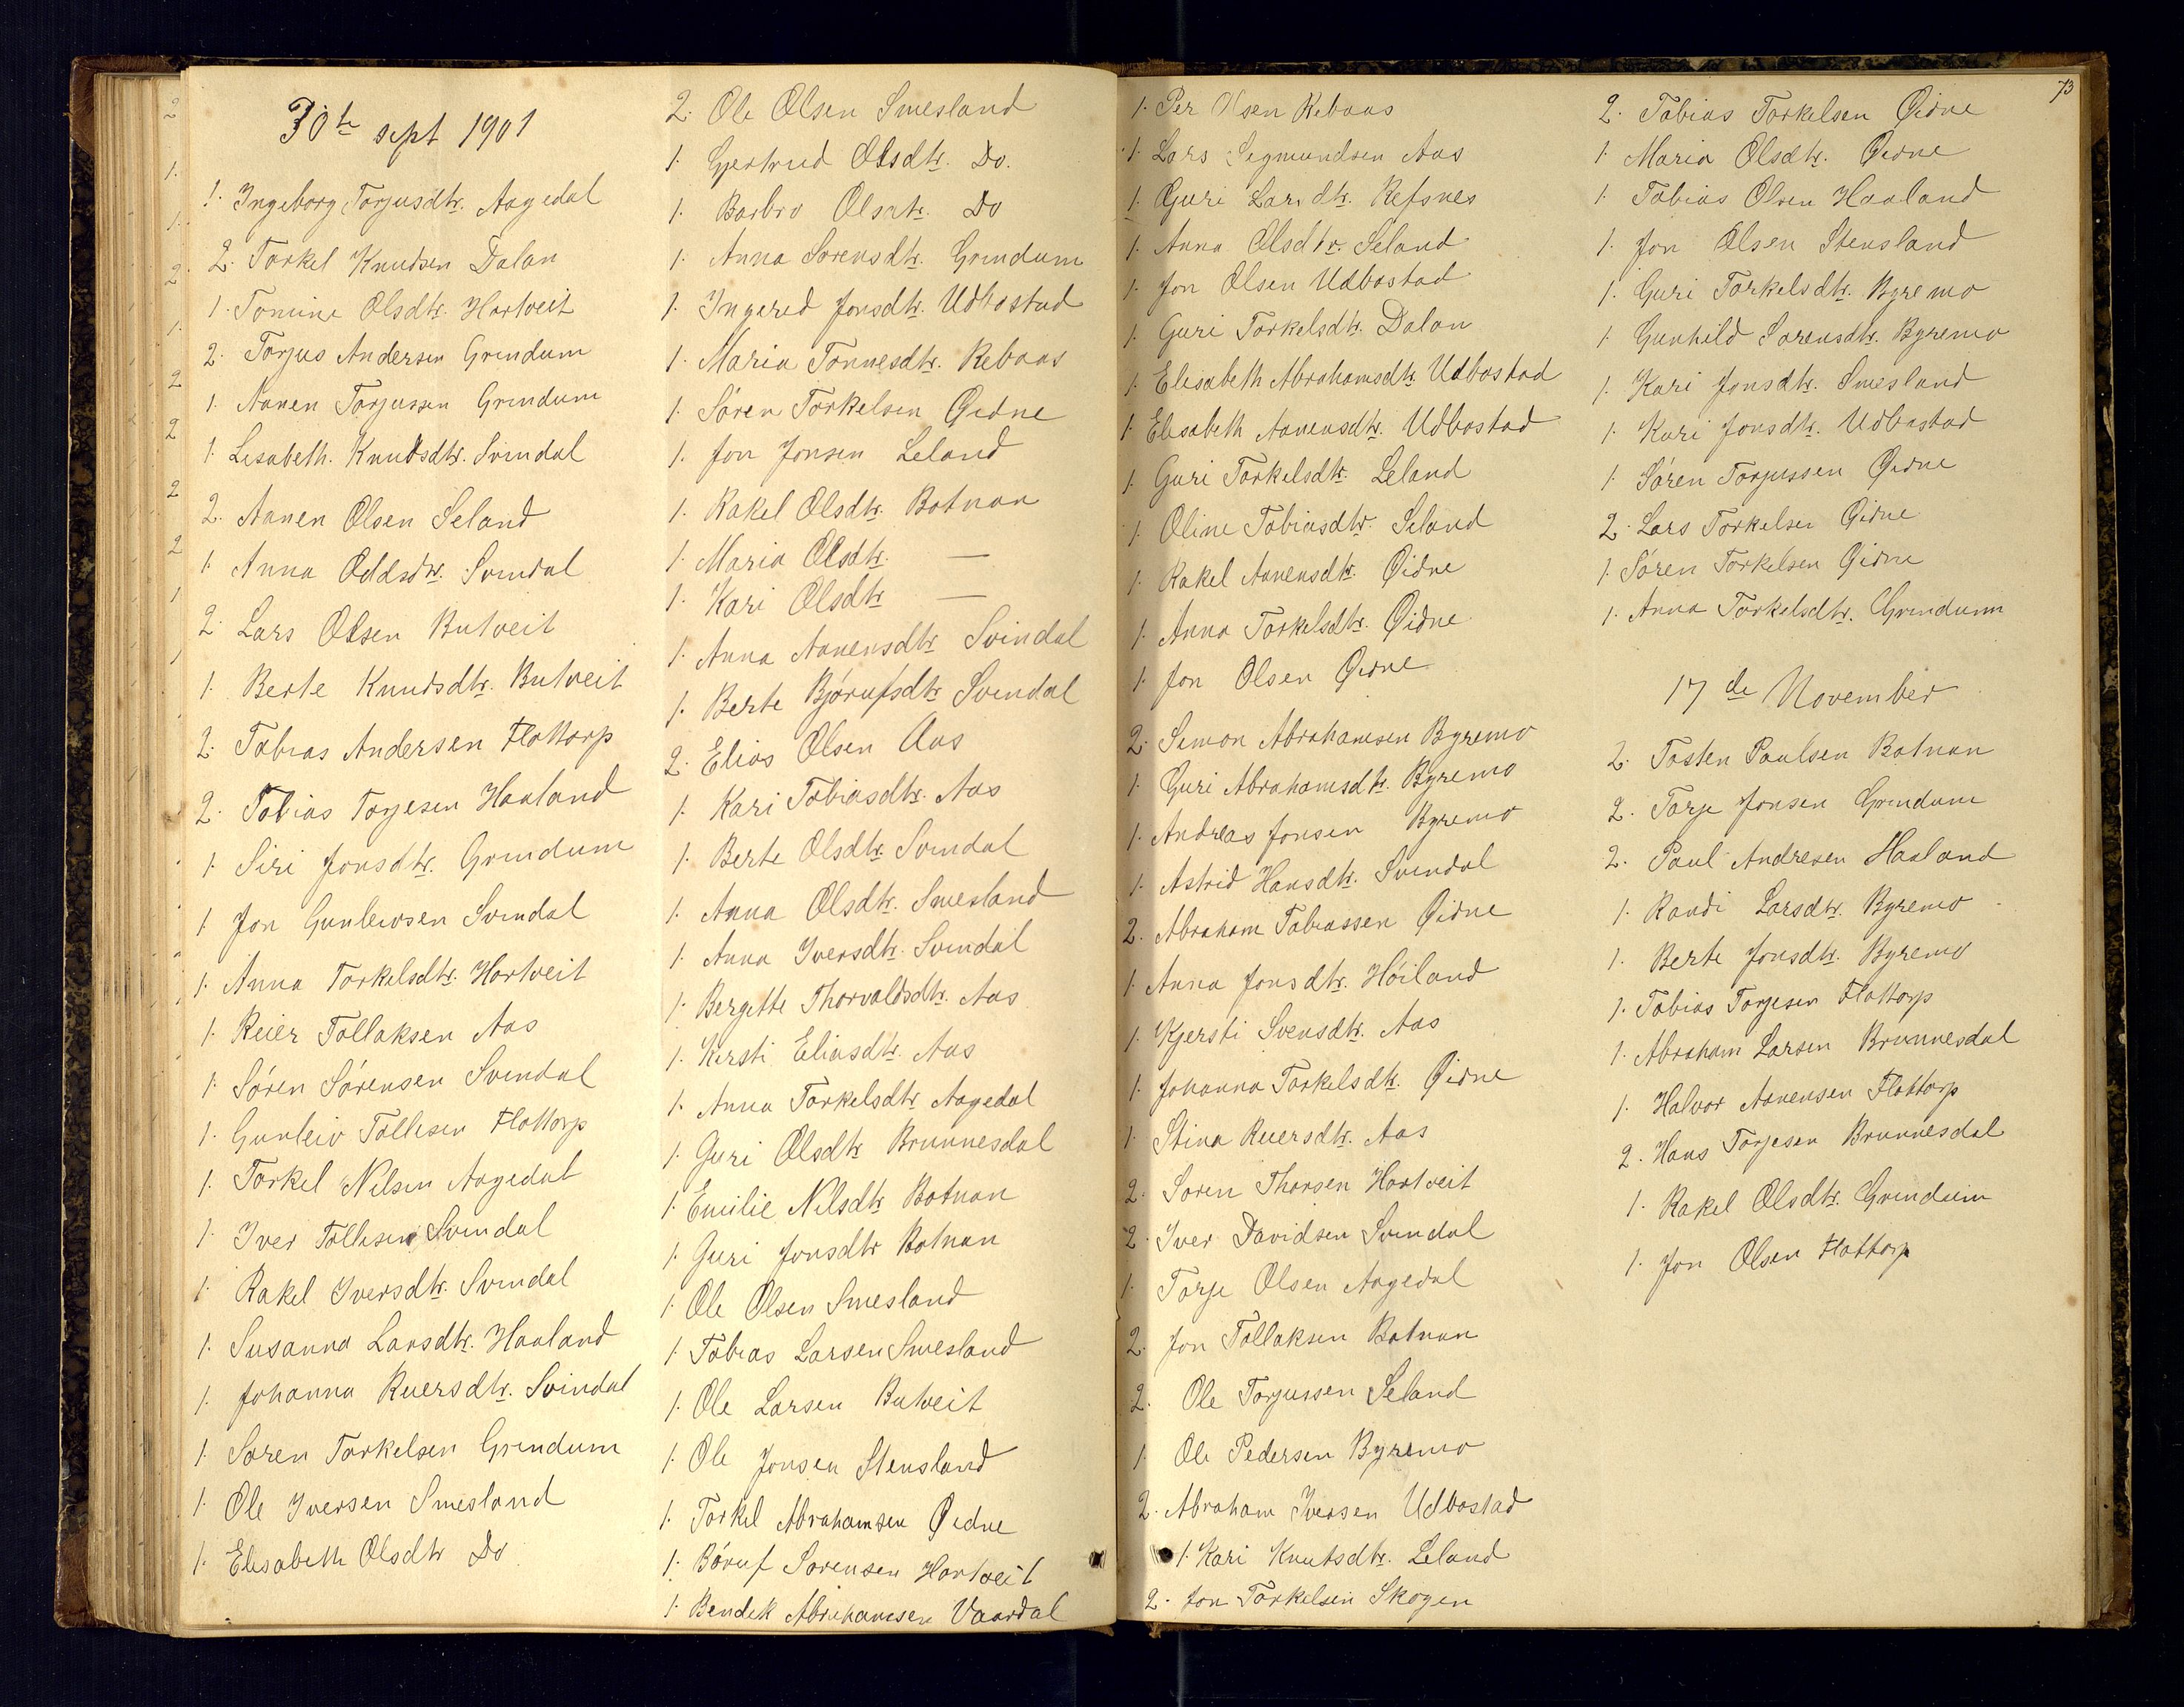 30te sept 1901
1. Ingeborg Torjusdtr. Aagedal
2. Torkel Knudsen Dalan
1. Tomine Olsdtr. Hortveit
2. Torjus Andersen Grindum
1. Aanen Torjussen Grindum
1. Lisabeth. Knudsdtr. Svindal
2. Aanen Olsen Seland
1. Anna Oddsdtr. Svindal
2. Lars Olsen Butveit
1. Berte Knudsdtr. Butveit
2. Tobias Andersen Flottorp
2. Tobias Torjesen Haaland
1. Siri Jonsdtr. Grindum
1 Jon Gunleivsen Svindal
1. Anna Torkelsdtr. Hortveit
1. Reier Tollaksen Aas
1. Sören Sörensen Svindal
1. Gunleiv Tollesen Flottorp
1. Torkel Nilsen Aagedal
1. Iver Tollesen Svindal
1. Rakel Iversdtr. Svindal
1. Susanna Larsdtr. Haaland
1. Johanna Reiersdtr. Svindal
1. Soren Torkelsen Grindum
1. Ole Iversen Smesland
1. Elisabeth Olsdtr Do
2. Ole Olsen Smesland
1. Gjertrud Olsdtr. Do.
1. Barbro Olsdtr. Do
1. Anna Sorensdtr. Grindum
1. Ingered Jonsdtr. Udbostad
1. Maria Tonnesdtr. Rebaas
1. Sören Torkelsen Øidne
1. Jon Jonsen Leland
1. Rakel Olsdtr. Botnan
1. Maria Olsdtr. —
1. Kari Olsdtr —
1. Anna Aanensdtr Svindal
1. Berte Bjórufsdtr Svindal
2. Elias Olsen Aas
1. Kari Tobiasdtr. Aas
1. Berte Olsdtr. Svindal
1. Anna Olsdtr. Smesland
1. Anna Iversdtr. Svindal
1. Bergitte Thorvaldsdtr. Aas
1. Kirsti Eliasdtr. Aas
1. Anna Torkelsdtr Aagedal
1. Guri Olsdtr Brunnesdal
1. Emilie Nilsdtr Botnan
1. Guri Jonsdtr Botnan
1. Ole Olsen Smesland
1. Tobias Larsen Smesland
1. Ole Larsen Butveit
1. Ole Jonsen Stensland
1. Torkel Abrahamsen Øidne
1. Bóruf Sorensen Hortveit
1. Bendik Abrahamsen Vaardal
73
1. Per Olsen Rebaas
1. Lars Segmundsen Aas
1. Guri Larsdtr. Refsnes
1. Anna Olsdtr. Seland
1. Jon Olsen Udbostad
1. Guri Torkelsdtr. Dalan
1. Elisabeth Abrahamsdtr. Udbostad
1. Elisabeth Aanensdtr. Udbostad
1. Guri Torkelsdtr. Leland
1. Oline Tobiasdtr. Seland
1. Rakel Aanensdtr. Øidne
1. Anna Torkelsdtr. Øidne
1. Jon Olsen Øidne
2. Simon Abrahamsen Byremo
1. Guri Abrahamsdtr. Byremo
1. Andreas Jonsen Byremo
1. Astrid Hansdtr. Svindal
2. Abraham Tobiassen Øidne
1. Anna Jonsdtr. Höiland
1. Kjersti Svensdtr. Aas
1. Johanna Torkelsdtr. Øidne
1. Stina Reiersdtr. Aas
2. Soren Thorsen Hortveit
2. Iver Davidsen Svindal
1. Torje Olsen Aagedal
2. Jon Tollaksen Botnan
2. Ole Torjussen Seland
1. Ole Pedersen Byremo
2. Abraham Iversen Udbostad
1. Kari Knutsdtr. Leland
2. Jon Torkelsen Skogen
2. Tobias Torkelsen Øidne
1. Maria Olsdtr. Øidne
1. Tobias Olsen Haaland
1. Jon Olsen Stensland
1. Guri Torkelsdtr. Byremo
1. Gunhild Sorensdtr. Byremo
1. Kari Jonsdtr. Smesland
1. Kari Jonsdtr. Udbostad
1. Sören Torjussen Øidne
2. Lars Torkelsen Øidne
1. Sören Torkelsen Øidne
1. Anna Torkelsdtr. Grindum
17de November
2. Tosten Paulsen Botnan
2. Torje Jonsen Grindum
2. Paul Andresen Haaland
1. Randi Larsdtr. Byremo
1. Berte Jonsdtr. Byremo
1. Tobias Torjesen Flottorp
1. Abraham Larsen Brunnesdal
1. Halvor Aanensen Flottorp
2. Hans Torjesen Brunnesdal
1. Rakel Olsdtr. Grindum
1. Jon Olsen Flottorp